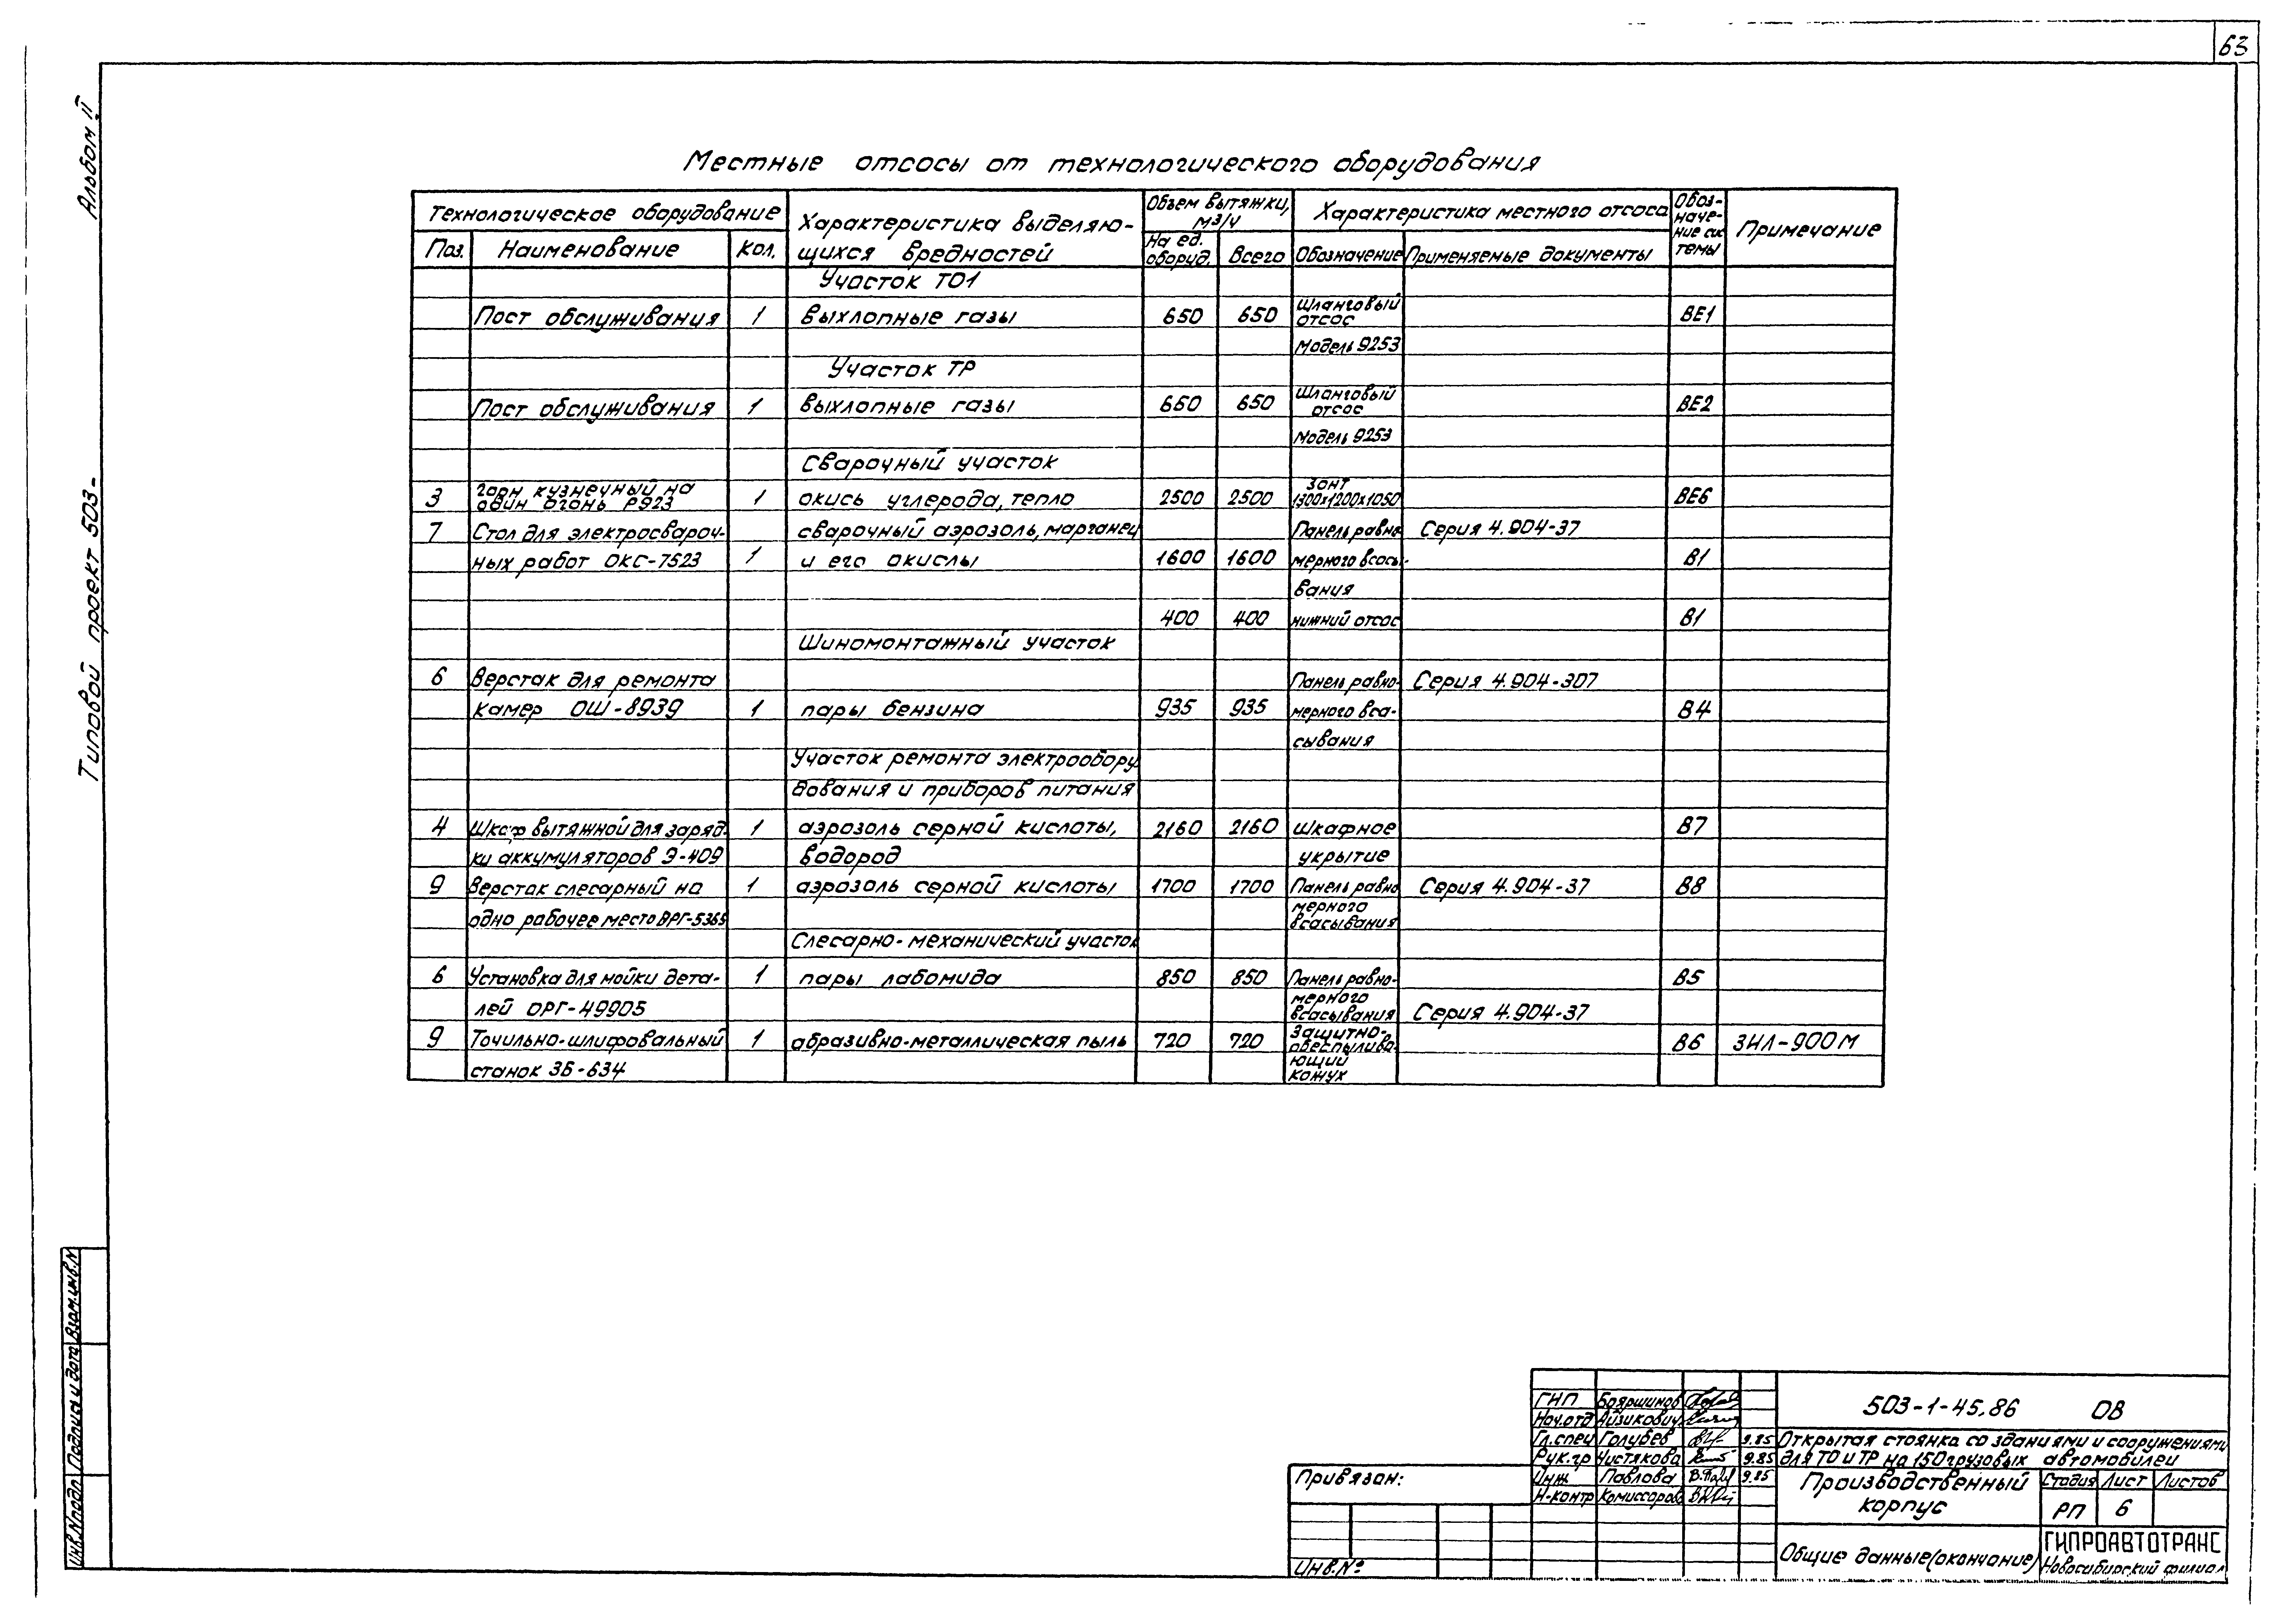 63
Альбом II
Типовой проект 503-
Местные отсосы от технологического оборудования
Технологическое оборудование
Характеристика выделяю-
щихся вредностей
Объем вытяжки,
м3/ч
Характеристика местного отсоса
Обоз-
наче-
ние сис
темы
Примечание
Поз. Наименование Кол. На ед.
оборуд. Всего Обозначение Применяемые документы
Участок ТО1
Пост обслуживания 1 выхлопные газы 650 650 Шланговый
отсос ВЕ1
Модель 9253
Участок ТР
Пост обслуживания 1 выхлопные газы 650 650 Шланговый
отсос ВЕ2
Модель 9253
Сварочный участок
3 горн кузнечный на
один огонь Р923 1 окись углерода, тепло 2500 2500 зонт
1300х1200х1050 ВЕ6
7 Стол для электросвароч- сварочный аэрозоль, марганец Панель равно Серия 4.904-37
ных работ ОКС-7523 1 и его окислы 1600 1600 мерного всасы- В1
вания
400 400 нижний отсос В1
Шиномонтажный участок
6 Верстак для ремонта Панель равно- Серия 4.904-307
камер ОШ-8939 1 пары бензина 935 935 мерного вса- В4
сывания
Участок ремонта электрообору
дования и приборов питания
4 Шкаф вытяжной для заряд- 1 аэрозоль серной кислоты, 2160 2160 Шкафное В7
ки аккумуляторов Э-409 водород укрытие
9 Верстак слесарный на 1 аэрозоль серной кислоты 1700 1700 Панель равно Серия 4.904-37 В8
одно рабочее место ВРГ-5365 мерного
всасывания
Слесарно-механический участок
6 Установка для мойки дета- 1 пары лабомида 850 850 Панель равно- В5
лей ОРГ-49905 мерного
всасывания Серия 4.904-37
9 Точильно-шлифовальный 1 абразивно-металлическая пыль 720 720 Защитно-
обеспылива- В6 ЗИЛ-900М
станок 3Б-634 ющий
кожух
Взам.инв.N
Подпись и дата
Инв.N подл
Привязан:
Инв.№
ГИП Бояршинов
Нач.отд Айзикович
Гл.спец Голубев 9.85
Рук.гр Чистякова 9.85
Инж Павлова 9.85
Н-контр Комиссаров
503-1-45.86 ОВ
Открытая стоянка со зданиями и сооружениями
для ТО и ТР на 150 грузовых автомобилей
Производственный
корпус
Стадия Лист Листов
РП 6
Общие данные (окончание)
ГИПРОАВТОТРАНС
Новосибирский филиал